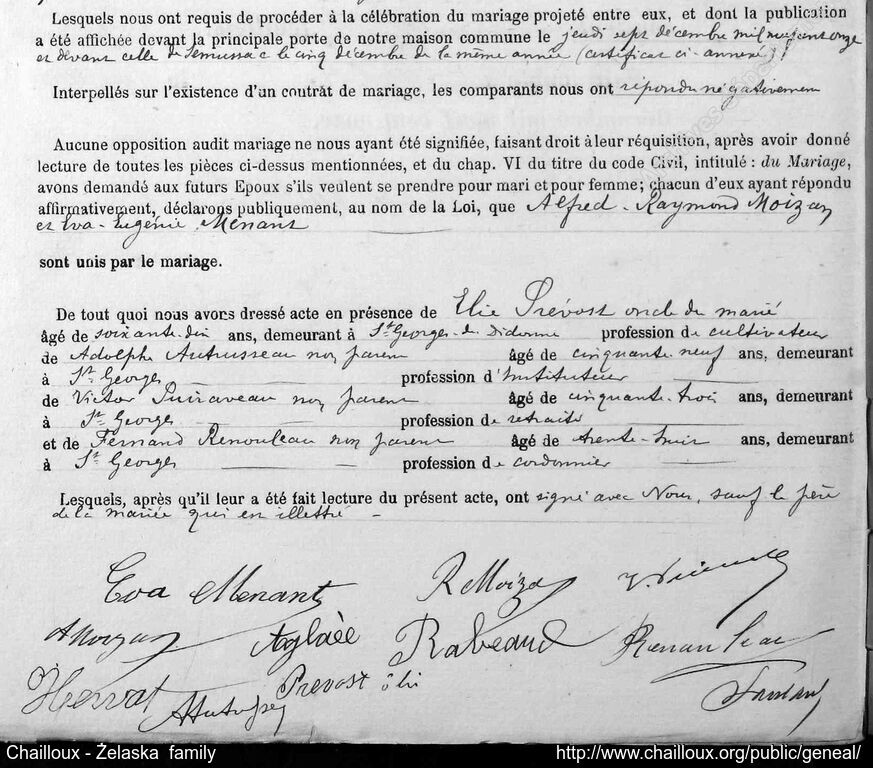 Lesquels nous ont requis de procéder à la célébration du mariage projeté entre eux, et dont la publication
a été affichée devant la principale porte de notre maison commune le jeudi sept décembre mil neuf cent onze
et devant celle de Semussac le cinq décembre de la même année (certificat ci-annexé)
Interpellés sur l'existence d'un contrat de mariage, les comparants nous ont répondu négativement
Aucune opposition audit mariage ne nous ayant été signifiée, faisant droit à leur réquisition, après avoir donné
lecture de toutes les pièces ci-dessus mentionnées, et du chap. VI du titre du code Civil, intitulé : du Mariage,
avons demandé aux futurs Epoux s'ils veulent se prendre pour mari et pour femme; chacun d'eux ayant répondu
affirmativement, déclarons publiquement, au nom de la Loi, que Alfred-Raymond Moizan
et Eva-Eugénie Menant
sont unis par le mariage.
De tout quoi nous avons dressé acte en présence de Elie Prévost oncle du marié
âgé de soixante-dix ans, demeurant à St Georges-de Didonne profession de cultivateur
de Adolphe Autrusseau non parent âgé de cinquante neuf ans, demeurant
à St Georges profession d'Instituteur
de Victor non parent âgé de cinquante-trois ans, demeurant
à St Georges profession de retraité
et de Fernand Renouleau non parent âgé de trente-huit ans, demeurant
à St Georges profession de cordonnier
Lesquels, après qu'il leur a été fait lecture du présent acte, ont signé avec Nous, sauf le père
de la mariée qui est illettré
Eva Menant R Moizan
A Moizan Aglaée Rabeaud Renouleau
Hervat Prevost Elie
Chailloux - Želaska family http://www.chailloux.org/public/geneal/